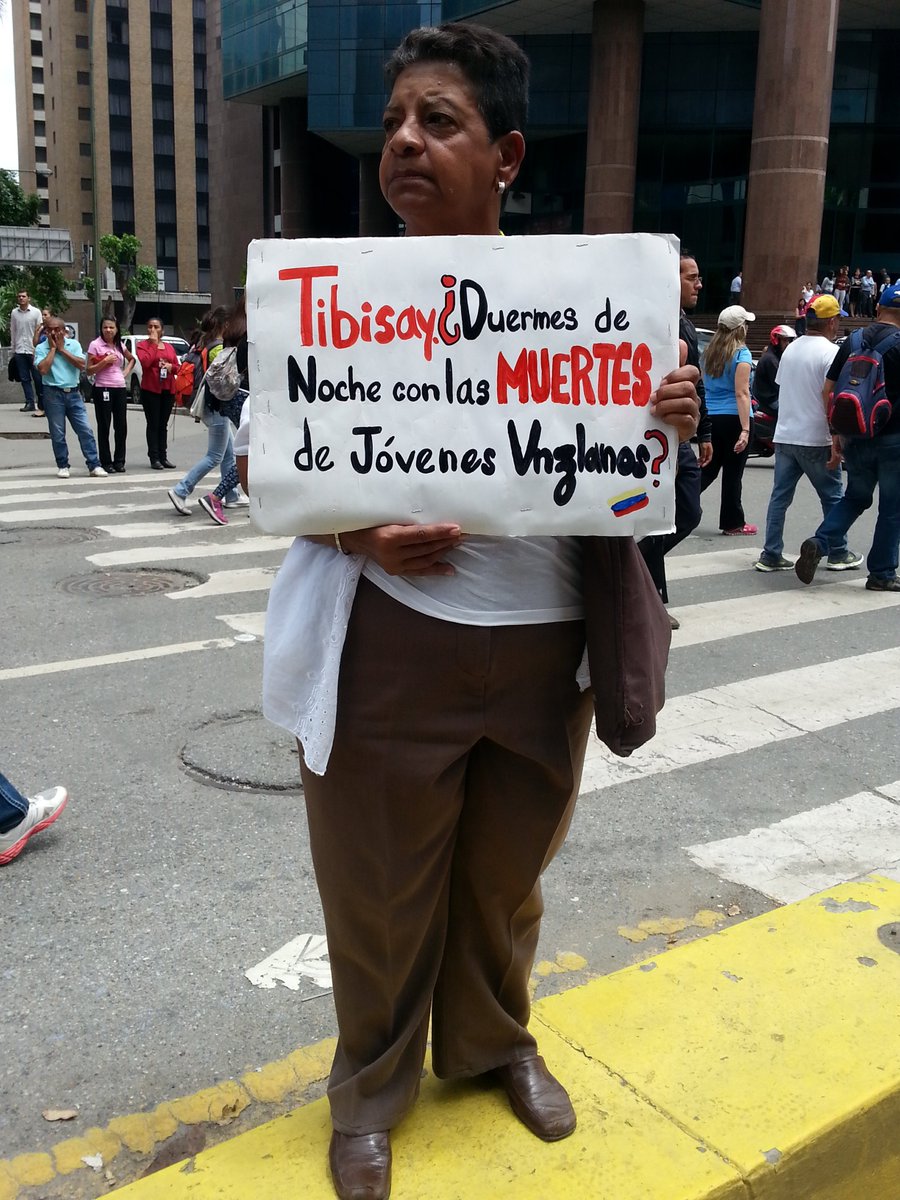 Tibisay.¿Duermes de
Noche con las MUERTES
de Jóvenes Vnzlanos?